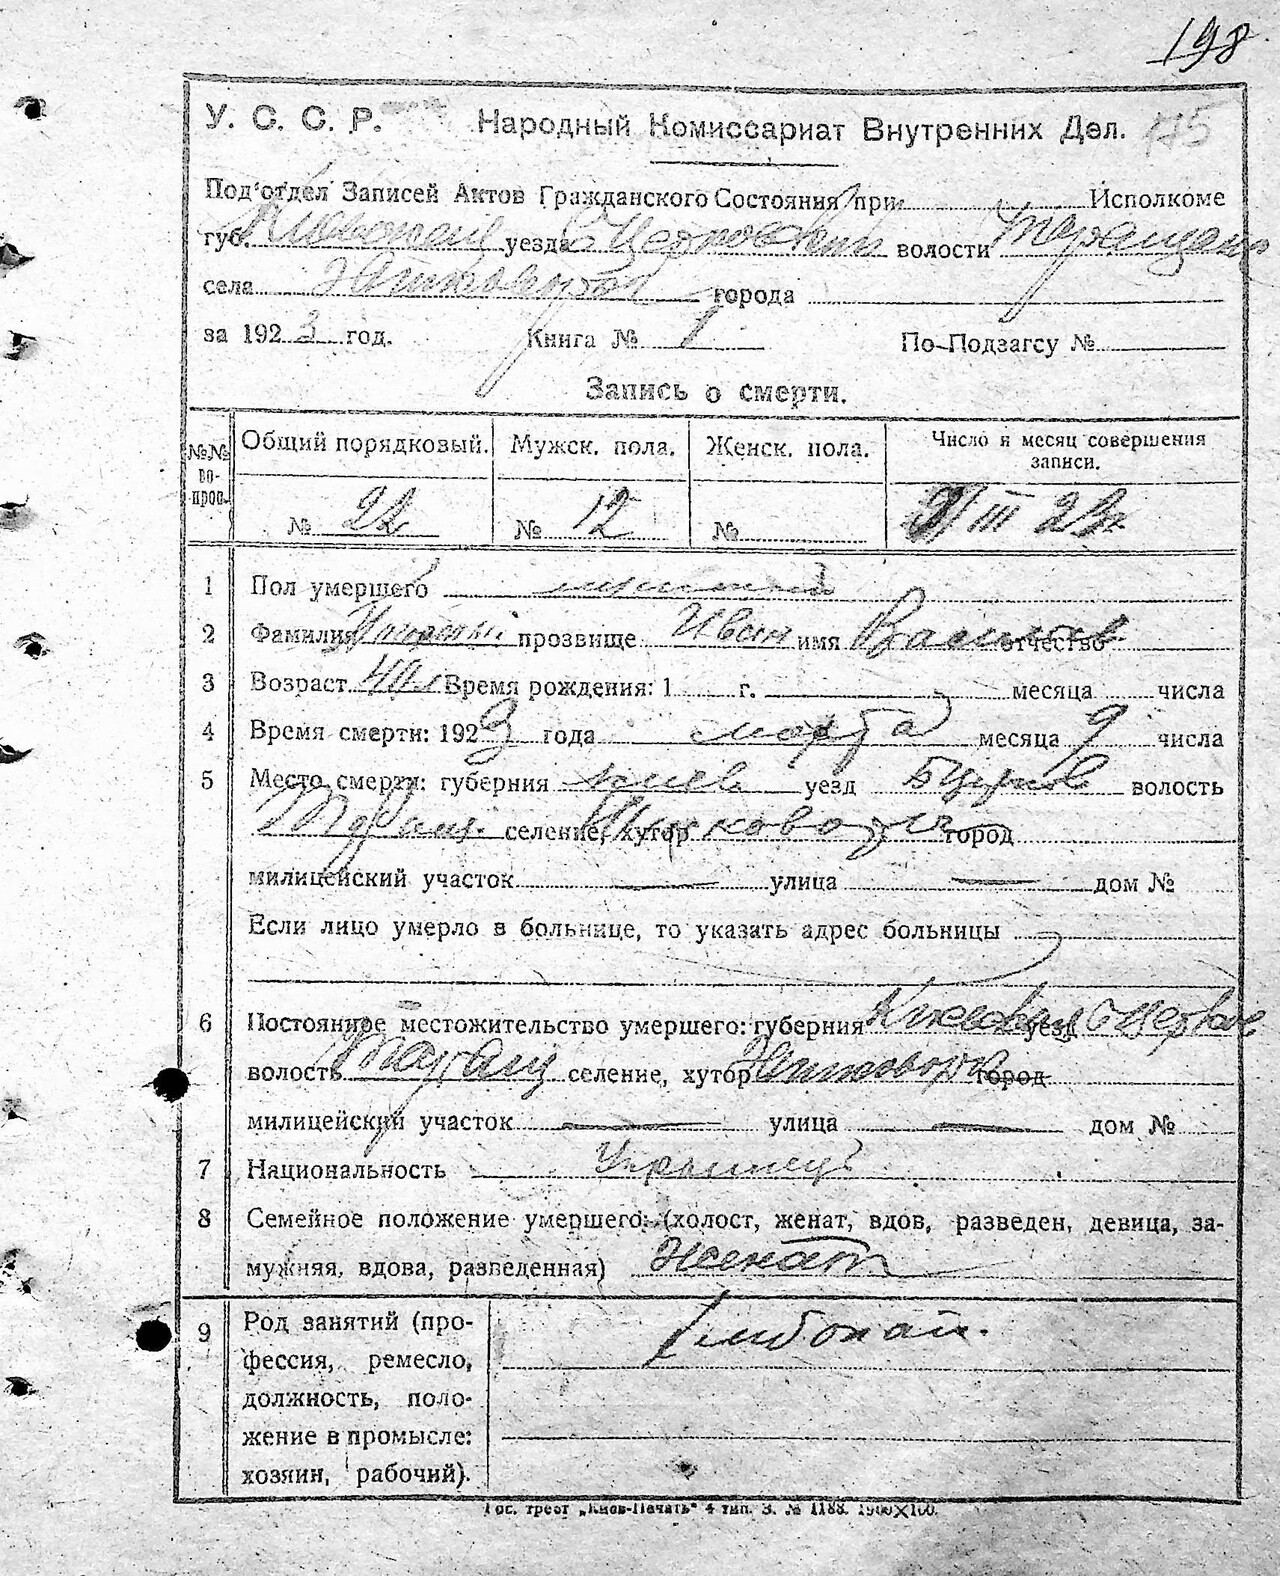 198
У. С. С. Р. Народный Комиссариат Внутренних Дел. 145
Под'отдел Записей Актов Гражданского Состояния при Исполкоме
губ. уезда волости
села города
за 1923 год. Книга № 1 По-Подзагсу №
Запись о смерти.
№№ во-прос. Общий порядковый. Мужск. пола. Женск. пола. Число и месяц совершения записи.
№ 22 № 12 № III
1 Пол умершего
2 Фамилия прозвище Иван имя отчество
3 Возраст Время рождения: 1 г. месяца числа
4 Время смерти: 1923 года марта месяца 9 числа
5 Место смерти: губерния киев. уезд волость
селение, хутор город
милицейский участок — улица — дом №
Если лицо умерло в больнице, то указать адрес больницы
6 Постоянное местожительство умершего: губерния уезд
волость Таращ селение, хутор город
милицейский участок — улица — дом №
7 Национальность
8 Семейное положение умершего: (холост, женат, вдов, разведен, девица, за-
мужняя, вдова, разведенная) Женат
9 Род занятий (про-
фессия, ремесло,
должность, поло-
жение в промысле:
хозяин, рабочий).
Гос. трест „Киев-Печать" 4 тип. З. № 1188. 1900×100.